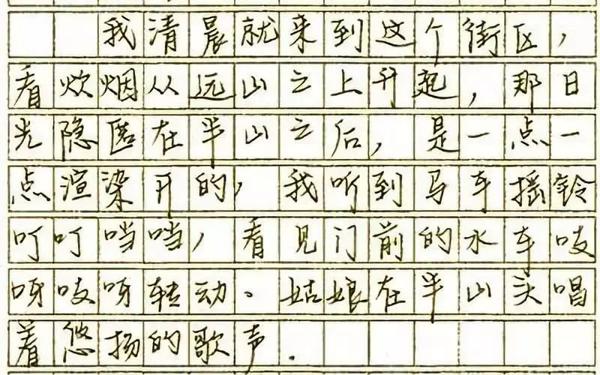 我清晨就来到这个街区,
看炊烟从远山之上升起,那日
光隐匿在半山之后,是一点一
点渲染开的,我听到马车摇铃
叮叮当当,看见门前的水车吱
呀吱呀转动、姑娘在半山头唱
着悠扬的歌声.